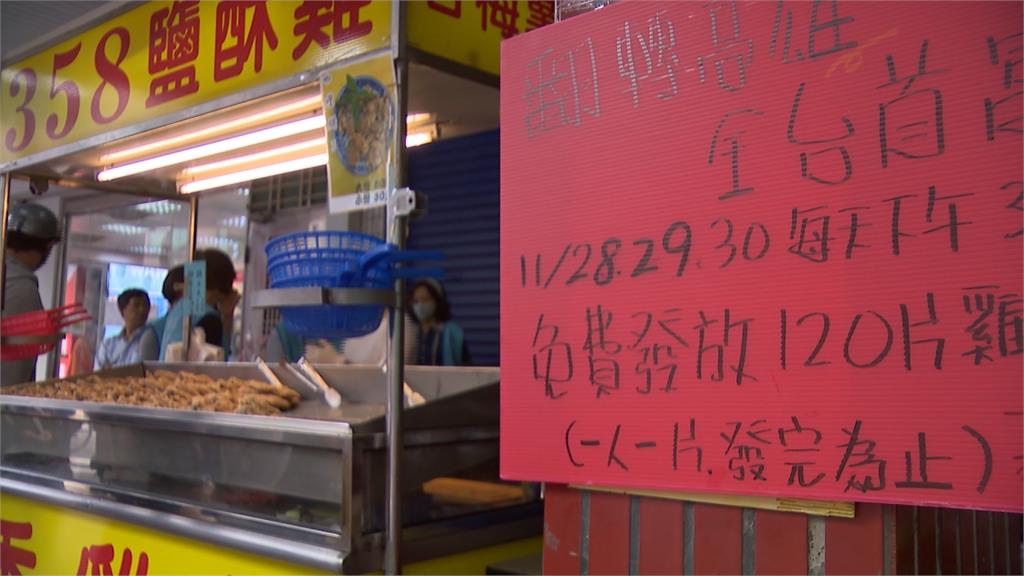 358鹽酥雞
翻轉高雄
全台首
11/28.29.30每天下午3
免費發放120片雞
(一人一片.發完為止)